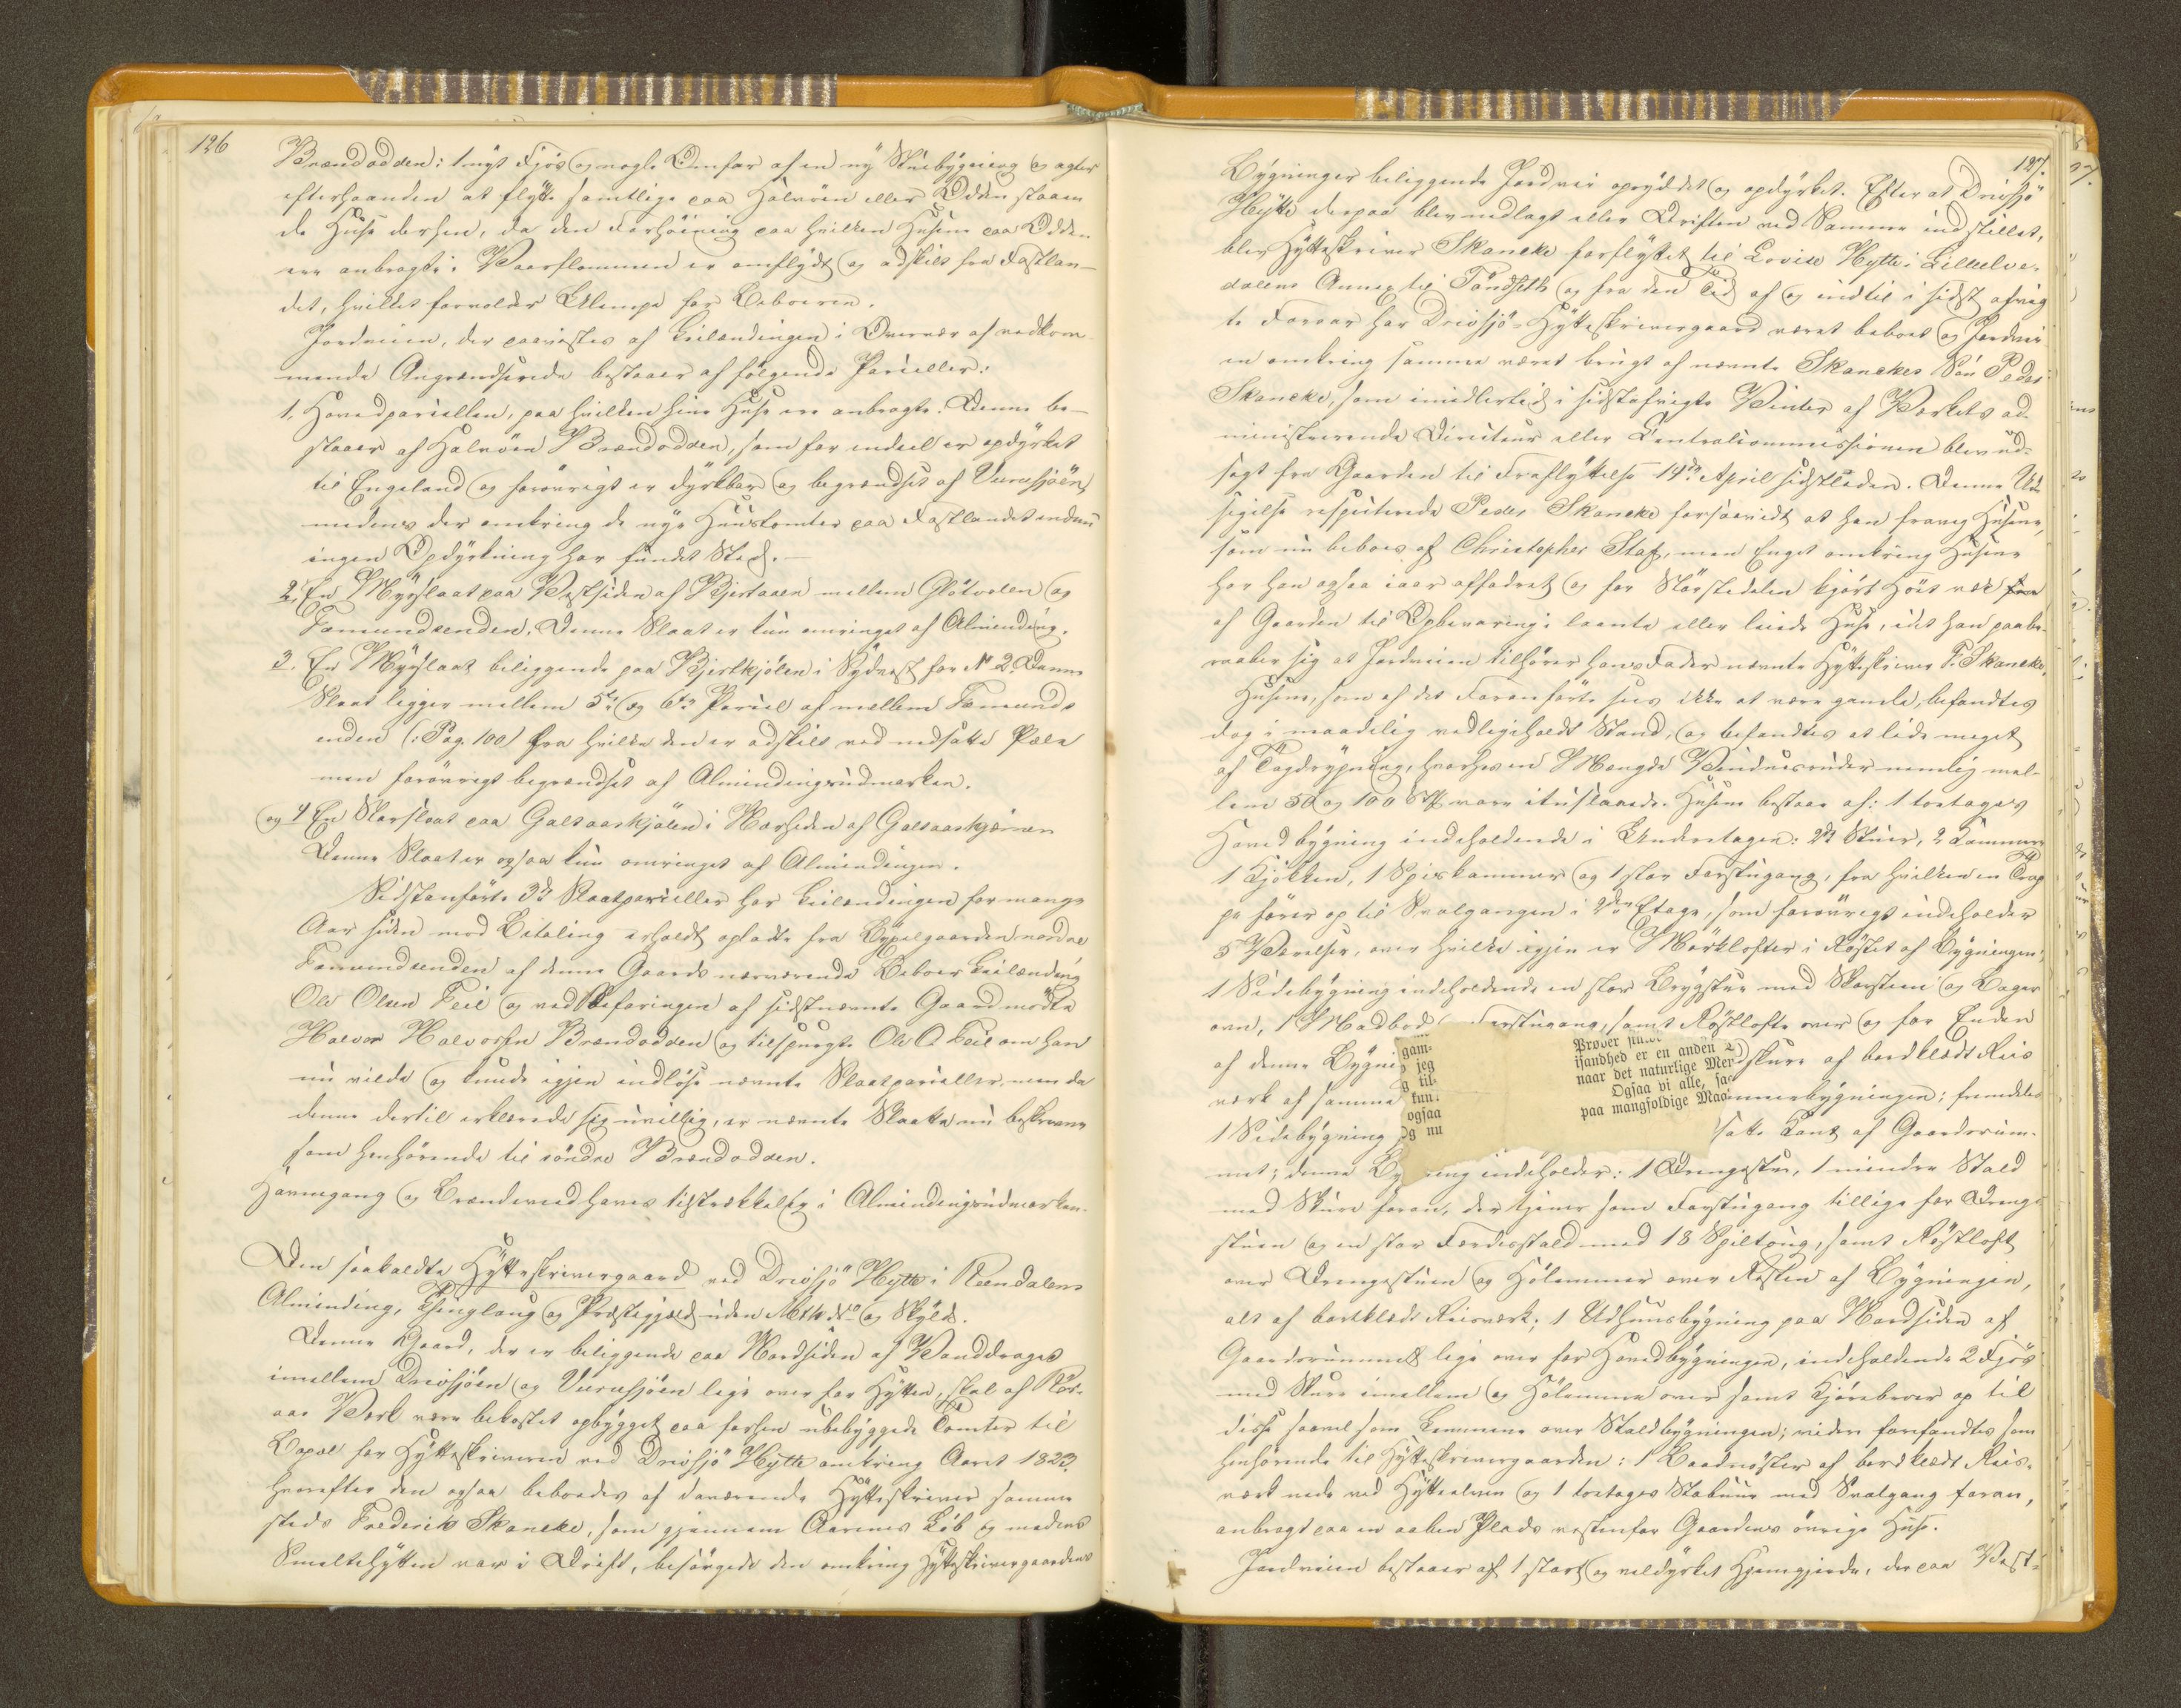 126
Brændodden: 1 nyt Fjøs og nogle Omfar af en ny Stuebygning og agter
efterhaanden at flytte samtlige paa Halvöen eller Odden staaen
de Huse derhen, da den Forhöining paa hvilken Husene paa Odden
ere anbragte i Vaarflommen er omflydt og adskilt fra Fastlan-
det, hvilket forvolder Ulempe for Beboeren.
Jordveien, der paavistes af Leilændingen i Overvær af vedkom-
mende Angrændserede bestaaer af følgende Parceller:
1, Hovedparcellen, paa hvilken hine Huse ere anbragte. Denne be-
staaer af Halvöen Brændodden, som for endeel er opdyrket
til Engeland og forövrigt er dyrkbar og begrændset af Vurrusjöen,
medens der omkring de nye Huustomter paa Fastlandet endnu
ingen Opdyrkning har fundet Sted.-
2, En Myrslaat paa Vestsiden af Bjertaaen mellem Glötvolen og
Fæmundsenden. Denne Slaat er kun omringet af Almending.
3. En Myrslaat beliggende paa Bjertkjölen i Sydvest for No 2. Denne
Slaat ligger mellem 5te og 6te Parcel af mellem Fæmunds
enden (: Pag. 100) fra hvilke den er adskilt ved nedsatte Pæle
men forövrigt begrændset af Almindingsudmarken.
og 4 En Starslaat paa Galtaaskjölen i Norsiden af Galtaaskjærnen
Denne Slaat er ogsaa kun omringet af Almindingen.
Sidstanförte 3de Slaatparceller har Leilændingen for mange
Aar siden mod Betaling erholdt opladte fra Bygselgaarden nordre
Fæmundsenden af denne Gaards nærværende Beboer Leilænding
Ole Olsen Feil og ved Befaringen af sidstnævnte Gaard mødte
Halvor Halvorsen Brændodden og tilspurgte Ole O. Feil om han
nu vilde og kunde igjen indlöse nævnte Slaatparceller, men da
denne dertil erklærede sig uvillig, er nævnte Slaatte nu beskrevne
som henhörende til söndre Brændodden.
Havnegang og Brændeved haves tilstrækkelig i Almindingsudmarken.
Den saakaldte Hytteskrivergaard ved Drevsjö Hytte i Rendalens
Alminding, Thinglaug og Præstegjæld uden Mtr. No og Skyld.
Denne Gaard, der er beliggende paa Nordsiden af Vanddraget
imellem Drevsjöen og Vurrusjöen lige over for Hytten, skal af Rör-
aas Værk være bekostet opbygget paa forhen ubebyggede Tomter til
Bopæl for Hytteskriveren ved Drevsjö Hytte omkring Aaret 1823.
hvorefter den ogsaa beboedes af daværende Hytteskriver samme
steds Frederik Skancke, som gjennem Aarenes Löb og medens
Smeltehytten var i Drift, besörgede den omkring Hytteskrivergaardens
127.
Bygninger beliggende Jordvei opryddet og opdyrket. Efter at Drevsjö
Hytte derpaa blev nedlagt eller Driften ved Samme indstillet,
blev Hytteskriver Skancke forflyttet til Lovise Hytte i Lilleelve-
dalens Annex til Töndseth og fra den Tid af og indtil i sidst afvig
te Foraar har Drevsjö-Hytteskrivergaard været beboet og Jordvei
en omkring samme været brugt af nævnte Skanckes Sön Peder
Skancke, som imidlertid i sidstafvigte Vinter af Værkets ad-
ministrerende Directeur eller Centralcommissionen blev ud-
sagt fra Gaarden til Fraflyttelse 14de April sidstleden. Denne Ud
sigelse respecterede Peder Skancke forsaavidt at han fraveg Husene,
som nu beboes af Christopher Staf, men Enget omkring Husene
har han ogsaa iaar affodret og for Störstedelen kjört Höet væk
af Gaarden til Opbevaring i laante eller leiede Huse, idet han paabe-
raaber sig at Jordveien tilhörer hans Fader nævnte Hytteskriver F. Skancke.
Husene, som af det Foranförte sees ikke at være gamle, befandtes
dog i maadelig vedligeholdt Stand, og befandtes at lide meget
af Tagdrypning, hvorhos en Mængde Vinduesruder nemlig mel-
lem 50 og 100 Stk. vare ituslaaede. Husene bestaae af: 1 toetages
Hovedbygning indeholdende i Underetagen: 2de Stuer, 2 Kammere
1 Kjökken, 1 Spiskammer og 1 stor Forstugang, fra hvilken en Trap
pe förer op til Svalgangen i 2den Etage, som forövrigt indeholder
5 Værelser, over hvilke igjen er Mörklofter i Röstet af Bygningen;
1 Sidebygning indeholdende en stor Brygstue med Skorsteen og Bager
ovn, 1 Madbod Forstugang, samt Röstlofte over og for Enden
af denne Bygni dskure af bordklædt Reis
værk af samme mmerbygningen; fremdeles
1 Sidebygning satte Kant af Gaardsrum-
met; denne By ning indeholder: 1 Drengestue, 1 mindre Stald
med Skure foran, der tjener som Forstugang tillige for Drenge
stuen og en stor Færdesstald med 18 Spiltoug, samt Röstloft
over Drengestuen og Hölemmer over Resten af Bygningen,
alt af bordklædt Reisværk; 1 Udhuusbygning paa Nordsiden af
Gaardsrummet lige over for Hovedbygningen, indeholdende 2 Fjös
med Skure imellem og Hölemme over samt Kjörebroer op til
disse saavel som Lemmene over Staldbygningen; videre forefandtes som
henhörende til Hytteskrivergaarden: 1 Baadnöster af bordklædt Reis-
værk nede ved Hytteelven og 1 toetages Stabuur med Svalgang foran,
anbragt paa en aaben Plads vestenfor Gaardens övrige Huse.
Jordveien bestaaer af 1 stort og veldyrket Hjemgjærde, der paa Vest-
gam-
jeg
g til-
kun
ogsaa
Og nu
Prøver
isandhed er en anden
naar det naturlige Men
Ogsaa vi alle, sa
paa mangfoldige Maa
27.